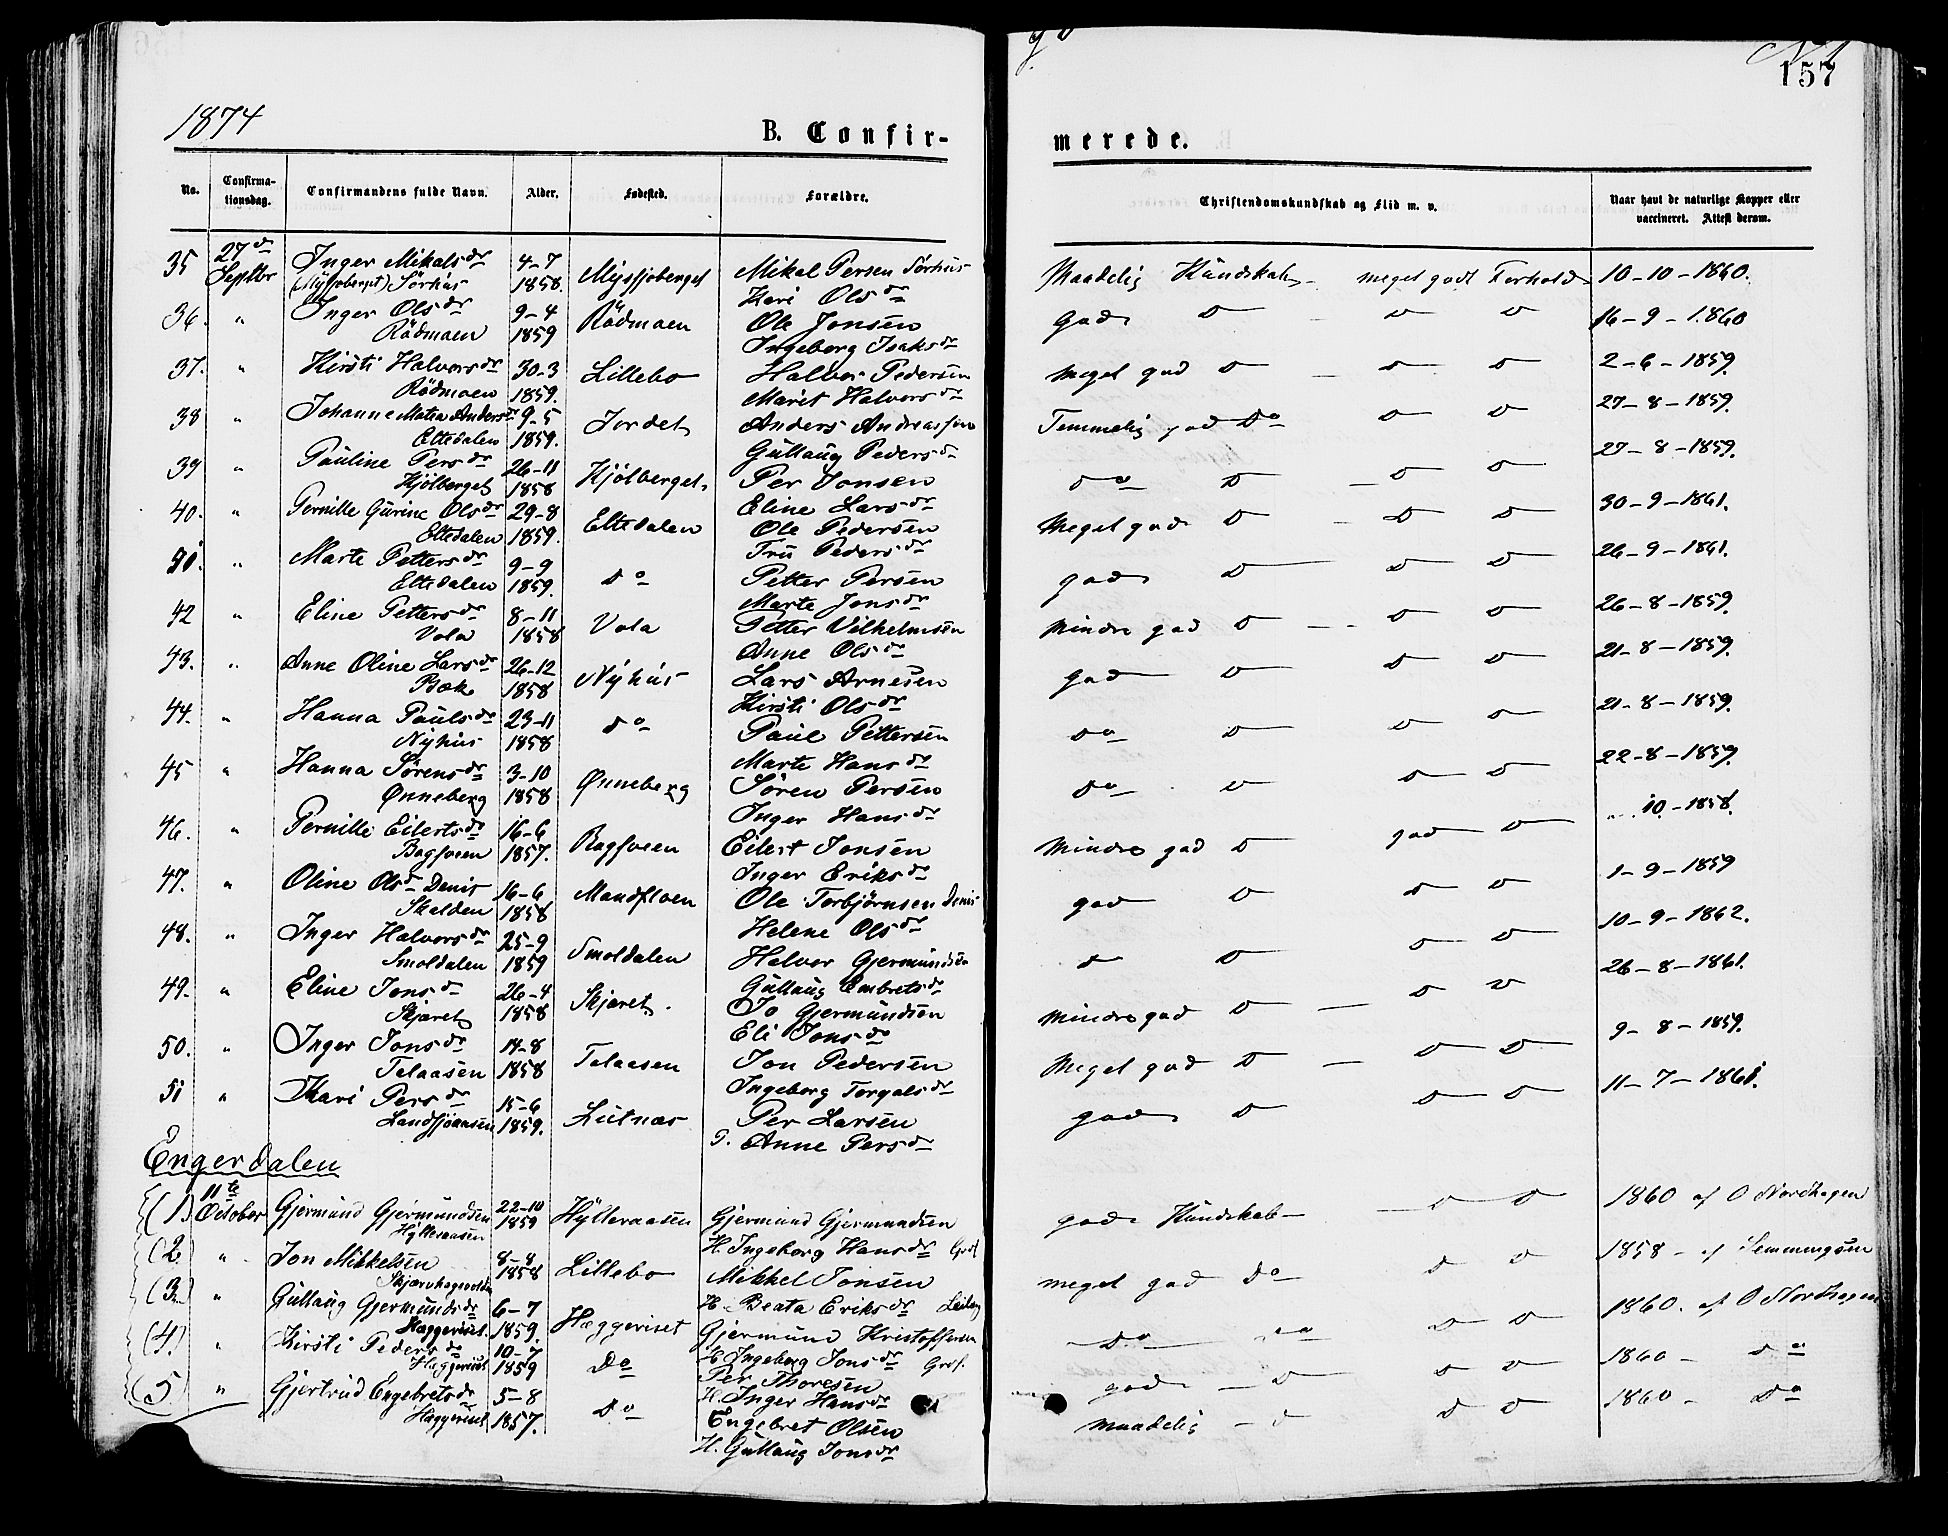 157
1874
B. Confir-
merede.
No. Confirma-tionsdag. Confirmandens fulde Navn. Alder. Fødested. Forældre. Christendomskundskab og Flid m. v. Naar havt de naturlige Kopper eller vaccineret. Attest derom.
35 27de Septbr Inger Mikalsdr (Myssjoberget) Sørhus 4-7 1858. Myssjoberget Mikal Persen Sørhus Kari Olsdr Maadelig Kundskab - meget godt Forhold 10-10-1860.
36. " Inger Olsdr Rödmoen 9-4 1859 Rödmoen Ole Jonsen Ingeborg Isaksdr god D - D D 16-9-1860
37. " Kirsti Halvorsdr Rödmoen 30-3 1859. Lillebo Halvor Pedersen Marit Halvorsdr Meget god D - D D 2-6-1859.
38 " Johanne Matea Andersdr Eltedalen 9-5 1859. Jordet Anders Andreassen Gullaug Pedersdr Temmelig god Do D D 27-8-1859.
39 " Pauline Persdr Kjölberget 26-11 1858 Kjölberget Per Jonsen Eline Larsdr Do D - D D 27-8-1859.
40. " Pernille Gurine Olsdr Eltedalen 29-8 1859. Eltedalen Ole Pedersen Tru Pedersdr Meget god D - D D 30-9-1861.
41. " Marte Pettersdr Eltedalen 9-9 1859. Do Petter Persen Marte Jonsdr god D D D 26-9-1861.
42 " Eline Pettersdr Vola 8-11 1858 Vola Petter Vilhelmsen Anne Olsdr Mindre god D - - D D 26-8-1859.
43. " Anne Oline Larsdr Bæk 26-12 1858 Nyhus Lars Arnesen Kirsti Olsdr god D D D 21-8-1859.
44. " Hanna Paulsdr Nyhus 23-11 1858 Do Paul Pettersen Marte Hansdr Do D D D 21-8-1859.
45 " Hanna Sørensdr Ønneberg 3-10 1858 Ønneberg Søren Persen Inger Hansdr Do D D D 22-8-1859.
46. " Pernille Eilertsdr Bagfoeen 16-6 1857. Bagfoeen Eilert Jonsen Inger Eriksdr Mindre god D god D 10-1858.
47. " Oline Olsdr Denis Skolden 16-6 1858 Mandfloen Ole Torbjørnsen Denis Helene Olsdr god D D D 1-9-1859
48. " Inger Halvorsdr Smoldalen 25-9 1859 Smoldalen Halvor Gjermundsen Gullaug Embretsdr D D D D 10-9-1862.
49. " Eline Jonsdr Skjæret 26-4 1858 Skjæret. Jo Gjermundsen Eli Jonsdr Mindre god D - D D 26-8-1861.
50. " Inger Jonsdr Talaasen 14-8 1858 Talaasen Jon Pedersen Ingeborg Torgalsdr Meget god D - D D 9-8-1859.
51 " Kari Persdr Landsjöaasen 15-6 1859. Lutnæs Per Larsen P. Anne Persdr god D D D 11-7-1861.
Engerdalen
(1.) 11te October Gjermund Gjermundsen Hylleraasen 22-10 1859 Hylleraasen Gjermund Gjermundsen H. Ingeborg Hansdr god Kundskab - D D 1860 af O Nordhagen
(2.) " Jon Mikkelsen 8-8 1858 Lillebo Mikkel Jonsen H. Beata Eriksdr meget god Do D D 1858 - af Semmingsen
(3.) " Gullaug Gjermundsdr Hæggeriset. 6-7 1859. Hæggeriset Gjermund Kristoffersen H. Ingeborg Jonsdr Do Do D D 1860. af O Nordhagen
(4.) " Kirsti Pedersdr Hæggeriset 10-7 1859 Do Per Thoresen H. Inger Hansdr god - D D D 1860 - Do
(5.) " Gjertrud Engebretsdr Hæggeriset 5-8 1857. Do Engebret Olsen H. Gullaug Jonsdr maadelig - D D D 1860 - Do